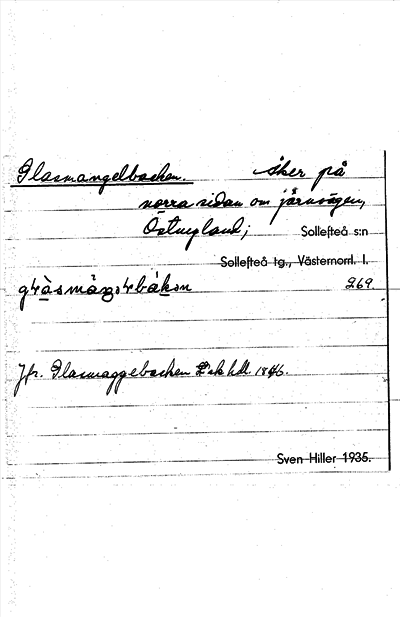 Glasmangelbacken. åker på
norra sidan om järnvägen,
Östnyland; Sollefteå s:n
Sollefteå tg., Västernorrl. l.
269.
Jfr. Glasmaggebacken L sk hdl 1846.
Sven Hiller 1935.